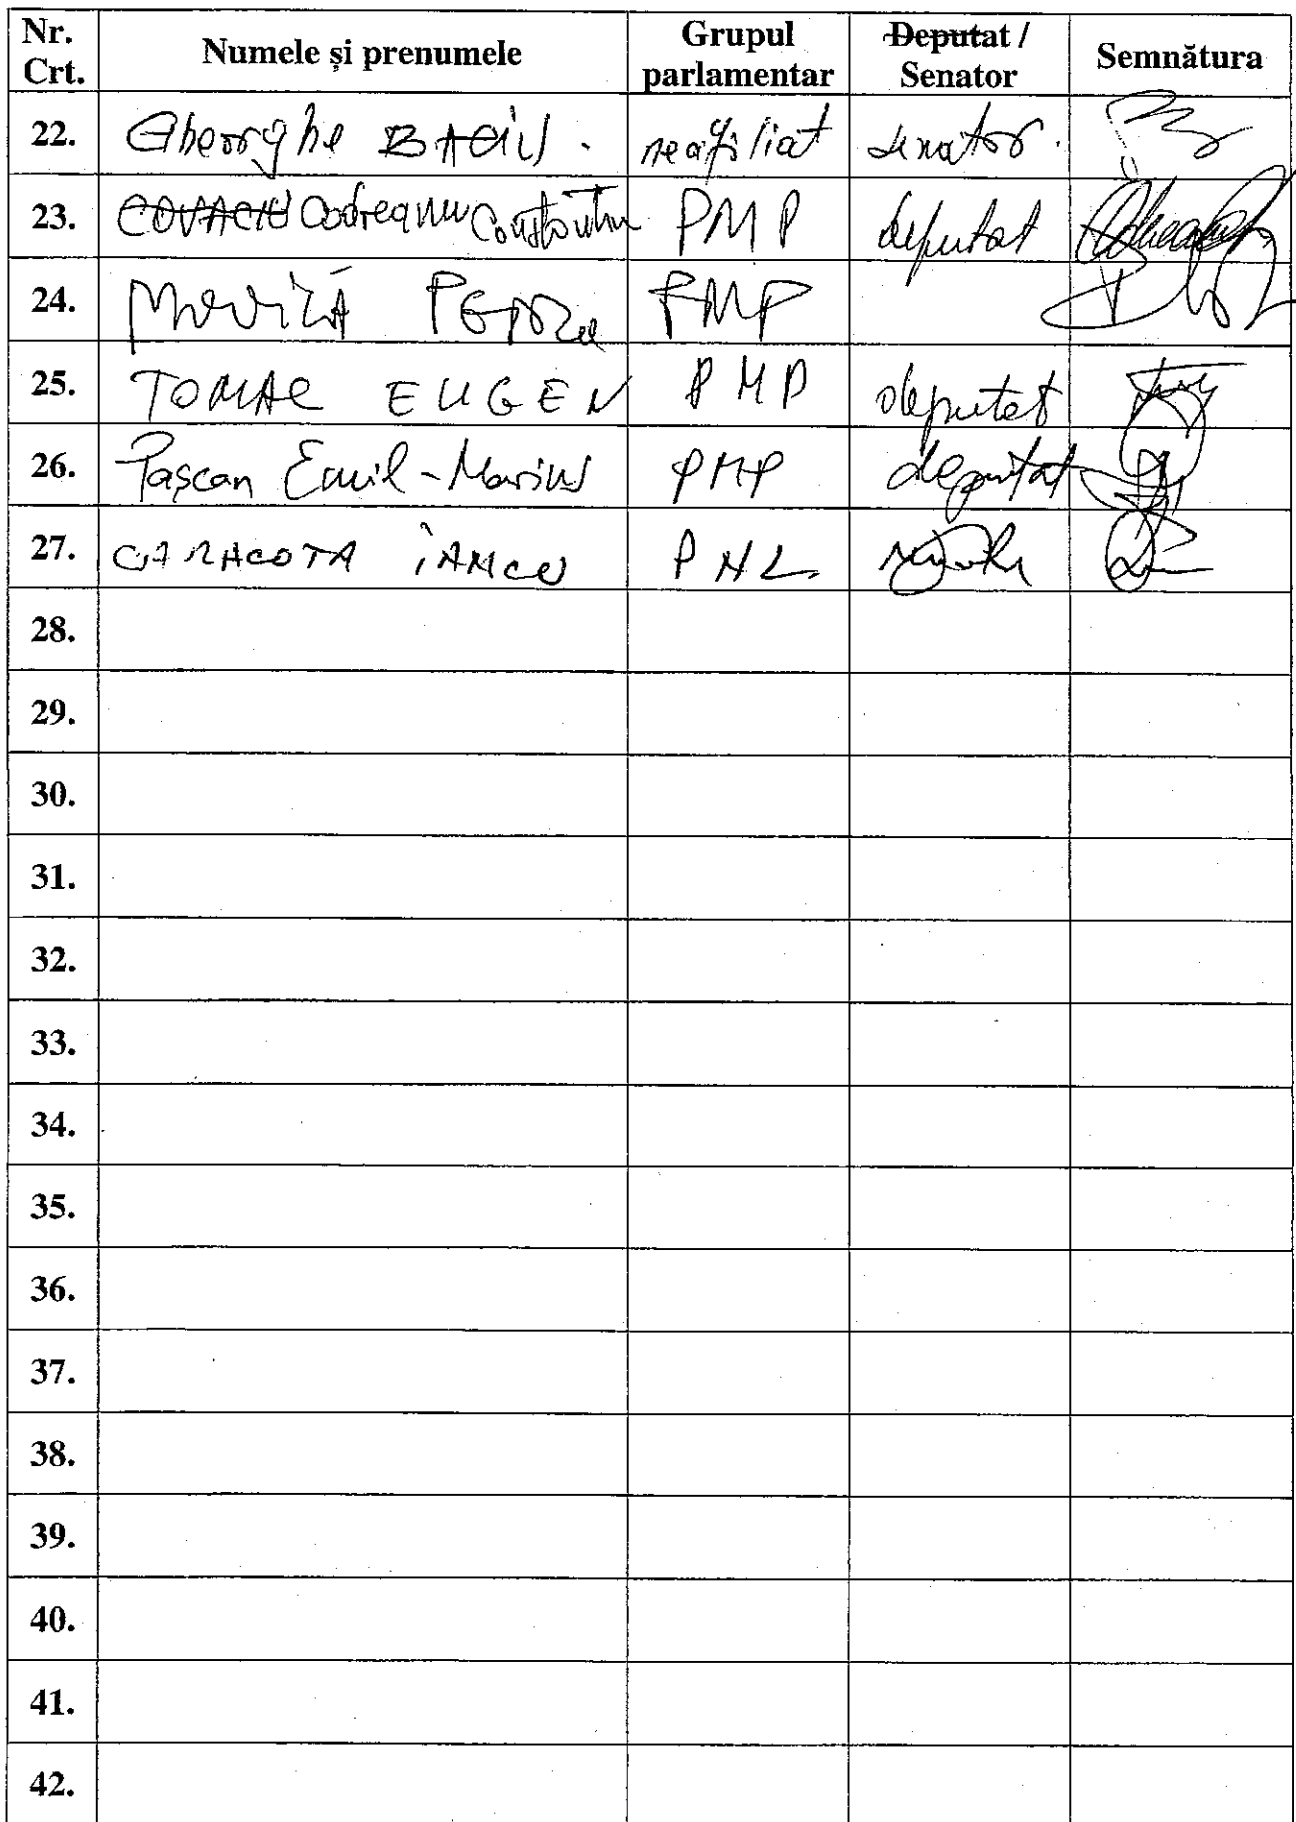 Nr. Crt. Numele și prenumele Grupul parlamentar Deputat / Senator Semnătura
22. Gheorghe BACIU . neafiliat senator.
23. COVACIU Codreanu Constantin PMP deputat
24. MOVILĂ PETRU PMP
25. TOMAC EUGEN PMP deputat
26. Pașcan Emil-Marius PMP deputat
27. CARACOTA IANCU PNL
28.
29.
30.
31.
32.
33.
34.
35.
36.
37.
38.
39.
40.
41.
42.